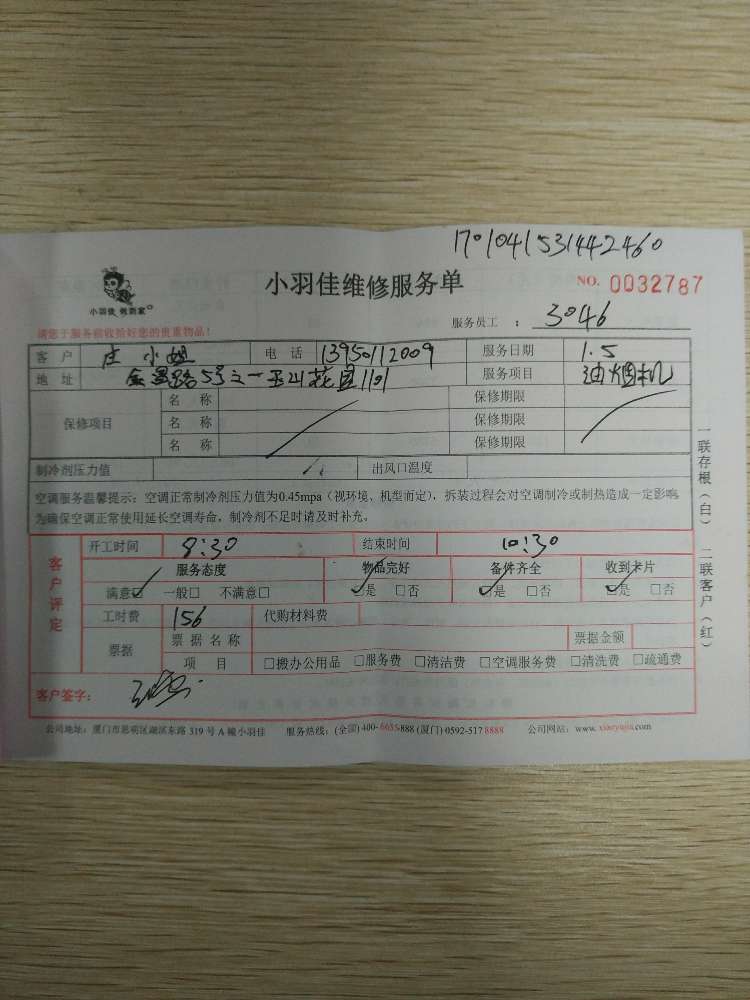 1701041531442460
小羽佳 做到家
小羽佳维修服务单
NO. 0032787
请您于服务前收拾好您的贵重物品!
服务员工 : 3046
客 户 庄小姐 电 话 13950112009 服务日期 1.5
地 址 路5号之一玉山花园1101 服务项目 油烟机
保修项目 名 称 保修期限
名 称 保修期限
名 称 保修期限
制冷剂压力值 出风口温度
空调服务温馨提示:空调正常制冷剂压力值为0.45mpa(视环境、机型而定),拆装过程会对空调制冷或制热造成一定影响
为确保空调正常使用延长空调寿命,制冷剂不足时请及时补充。
客户评定
开工时间 8:30 结束时间 10:30
服务态度 物品完好 备件齐全 收到卡片
满意☑ 一般□ 不满意□ ☑是 □否 ☑是 □否 ☑是 □否
工时费 156 代购材料费
票据 票 据 名 称 票据金额
项 目 □搬办公用品 □服务费 □清洁费 □空调服务费 □清洗费 □疏通费
客户签字:
公司地址:厦门市思明区湖滨东路 319 号 A 幢小羽佳 服务热线:(全国) 400-6655-888 (厦门) 0592-517 8888 公司网站:www. xiaoyujia.com
一联存根(白) 二联客户(红)